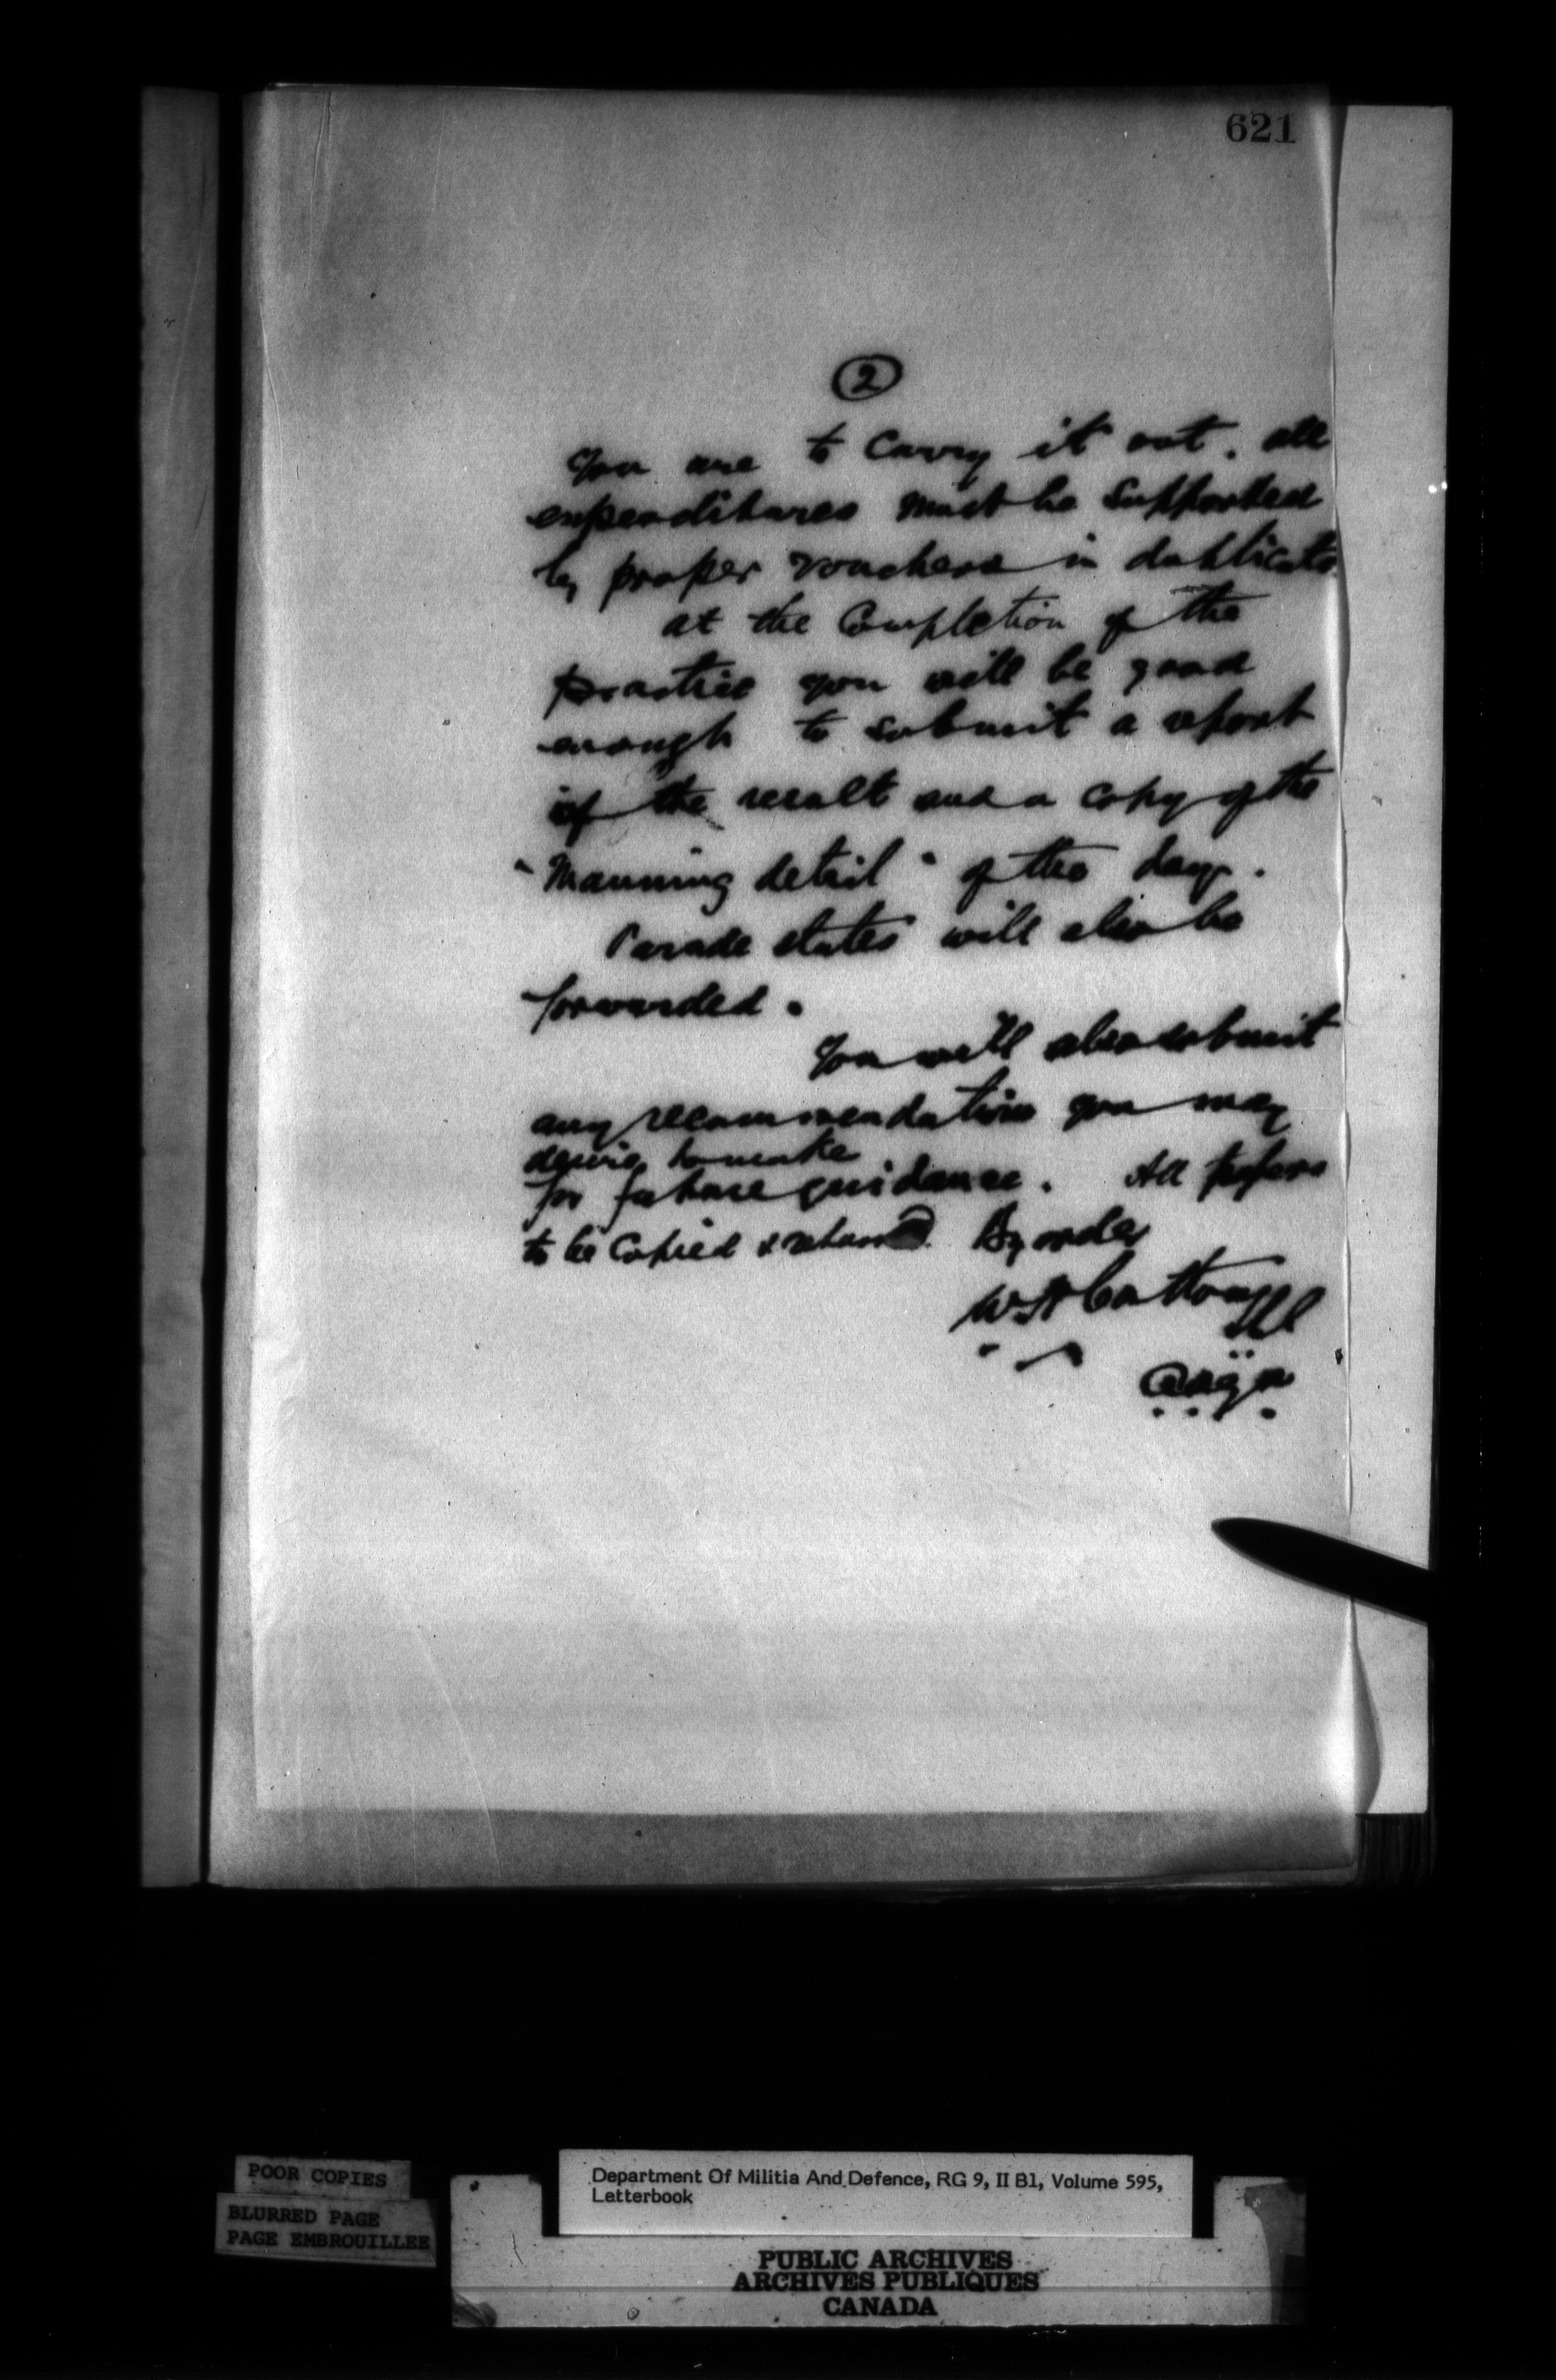 621
2
You are to Carry it out. all
expenditures must be Supported
by proper vouchers in duplicate
at the Completion of the
practice you will be good
enough to submit a report
of the result and a copy of the
"Manning detail" of the day.
Parade states will also be
forwarded.
You will also submit
any recommendation you may
desire to make
for future guidance. All papers
to be Copied & returned. By order
W H Cotton
POOR COPIES
BLURRED PAGE
PAGE EMBROUILLEE
Department Of Militia And Defence, RG 9, II B1, Volume 595,
Letterbook
PUBLIC ARCHIVES
ARCHIVES PUBLIQUES
CANADA